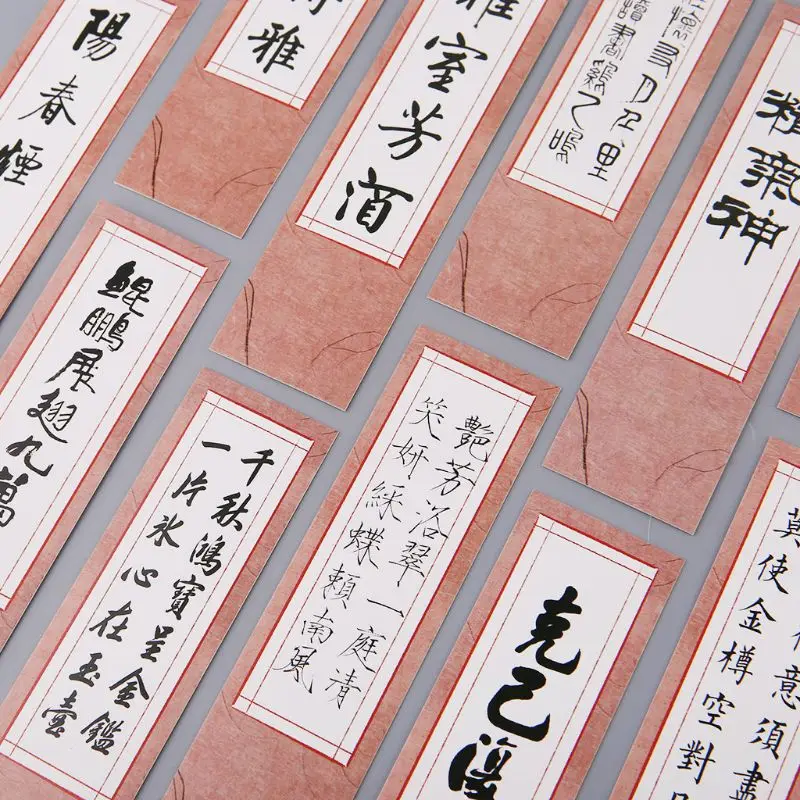 陽春煙
雅
雅室芳酒
精氣神
鯤鵬展翅九萬
千秋鴻寶呈金鑑
一片氷心在玉壺
艷芳洛翠一庭清
笑妍綵蝶賴南風
克己復
意須盡
莫使金樽空對